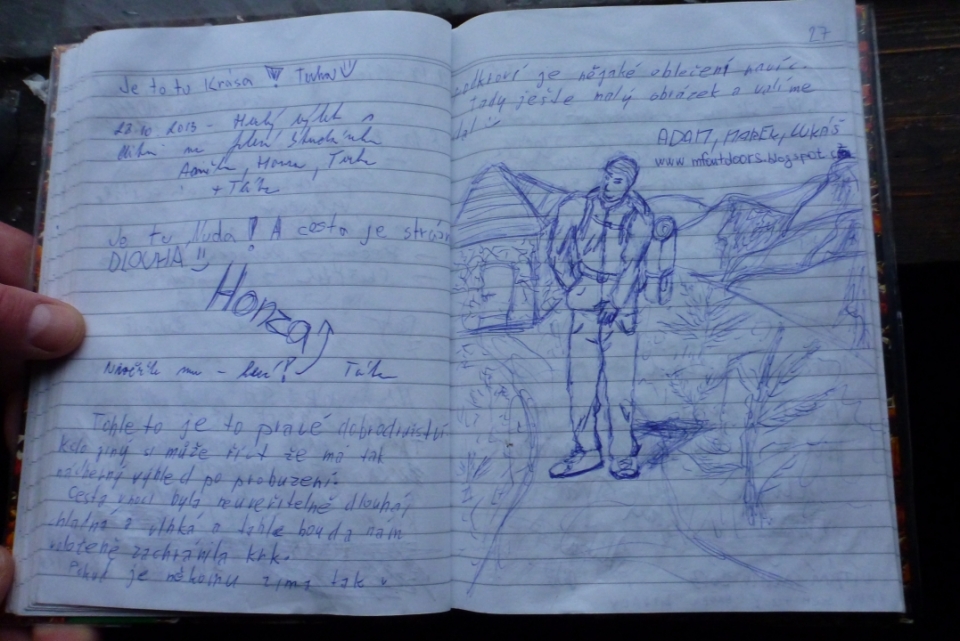 Je to tu Krása! Turha
28.10.2013 - Hezký výlet s
Anička, Honza,
+ Táta
Je tu nuda! A cesta je strašně
DLOUHÁ!!
Honza
Nevěřte mu - kecá! Táta
Tohle to je to pravé dobrodružství
Kdo jiný si může říct že má tak
nádherný výhled po probuzení.
Cesta v noci byla neuvěřitelně dlouhá,
chladná a vlhká a tahle bouda nám
zachránila krk.
Pokud je někomu zima tak v
je nějaké oblečení navíc.
Tady ještě malý obrázek a valíme
dál
ADAM, MAREK, LUKÁŠ
www.mfoutdoors.blogspot.cz
27